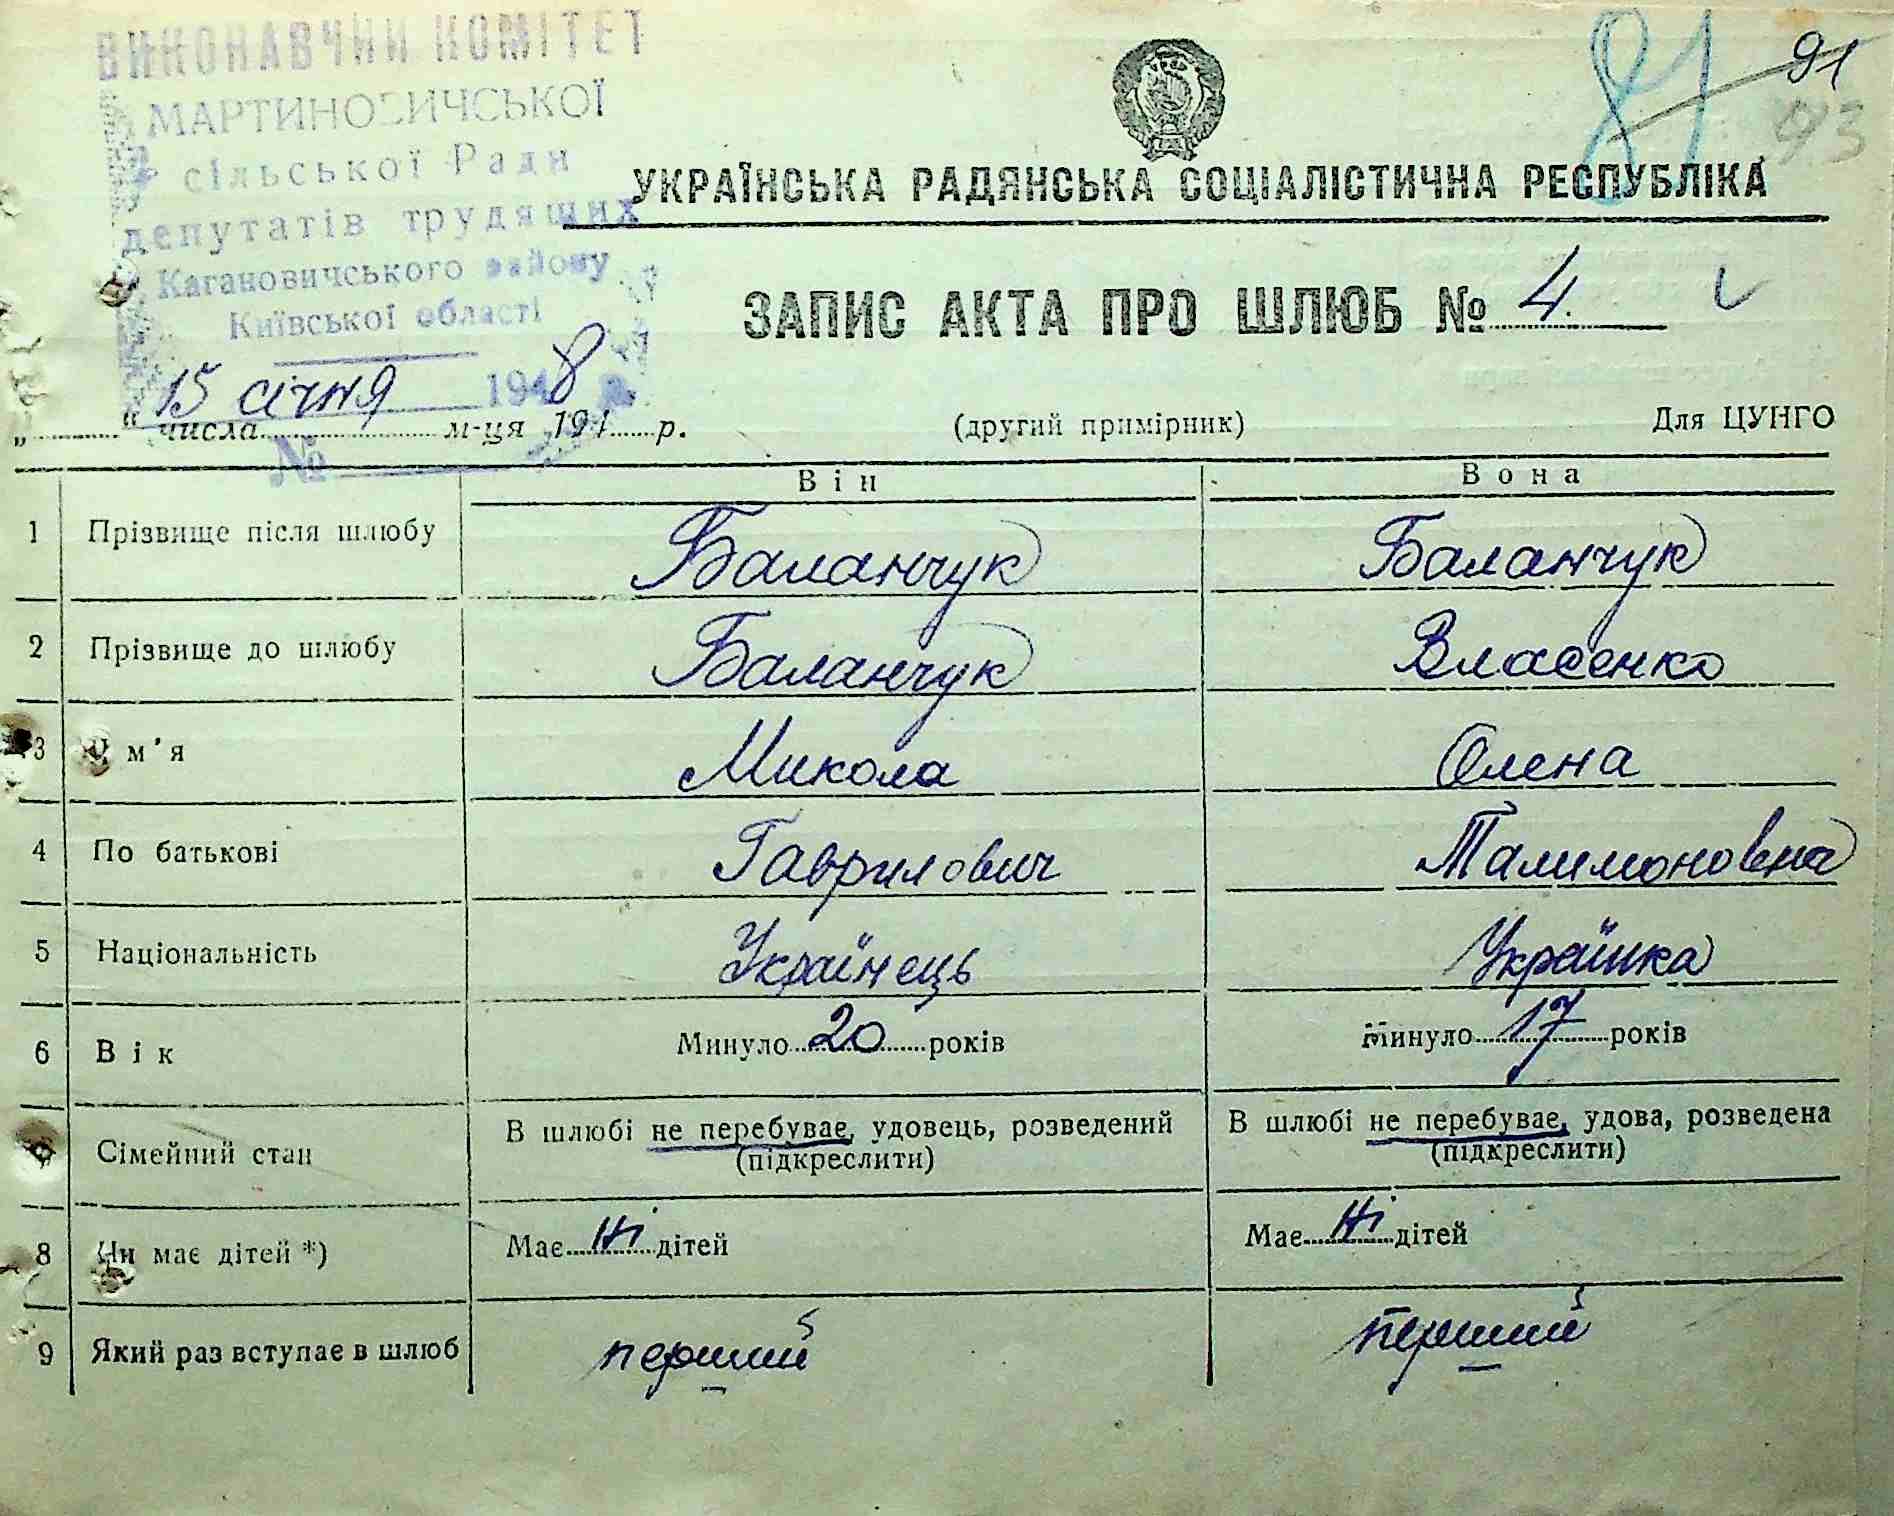 ВИКОНАВЧИЙ КОМІТЕТ
МАРТИНОВИЧСЬКОЇ
сільської Ради
депутатів трудящих
Кагановичського району
Київської області
15 січня 1948 р.
№
81 91
93
УКРАЇНСЬКА РАДЯНСЬКА СОЦІАЛІСТИЧНА РЕСПУБЛІКА
ЗАПИС АКТА ПРО ШЛЮБ № 4.
„ “ числа м-ця 194 р. (другий примірник) Для ЦУНГО
Він Вона
1 Прізвище після шлюбу Баланчук Баланчук
2 Прізвище до шлюбу Баланчук Власенко
3 Ім'я Микола Олена
4 По батькові Гаврилович Талимоновна
5 Національність Українець Українка
6 Вік Минуло 20 років Минуло 17 років
7 Сімейний стан В шлюбі не перебуває, удовець, розведений В шлюбі не перебуває, удова, розведена
(підкреслити) (підкреслити)
8 Чи має дітей *) Має ні дітей Має ні дітей
9 Який раз вступає в шлюб перший перший